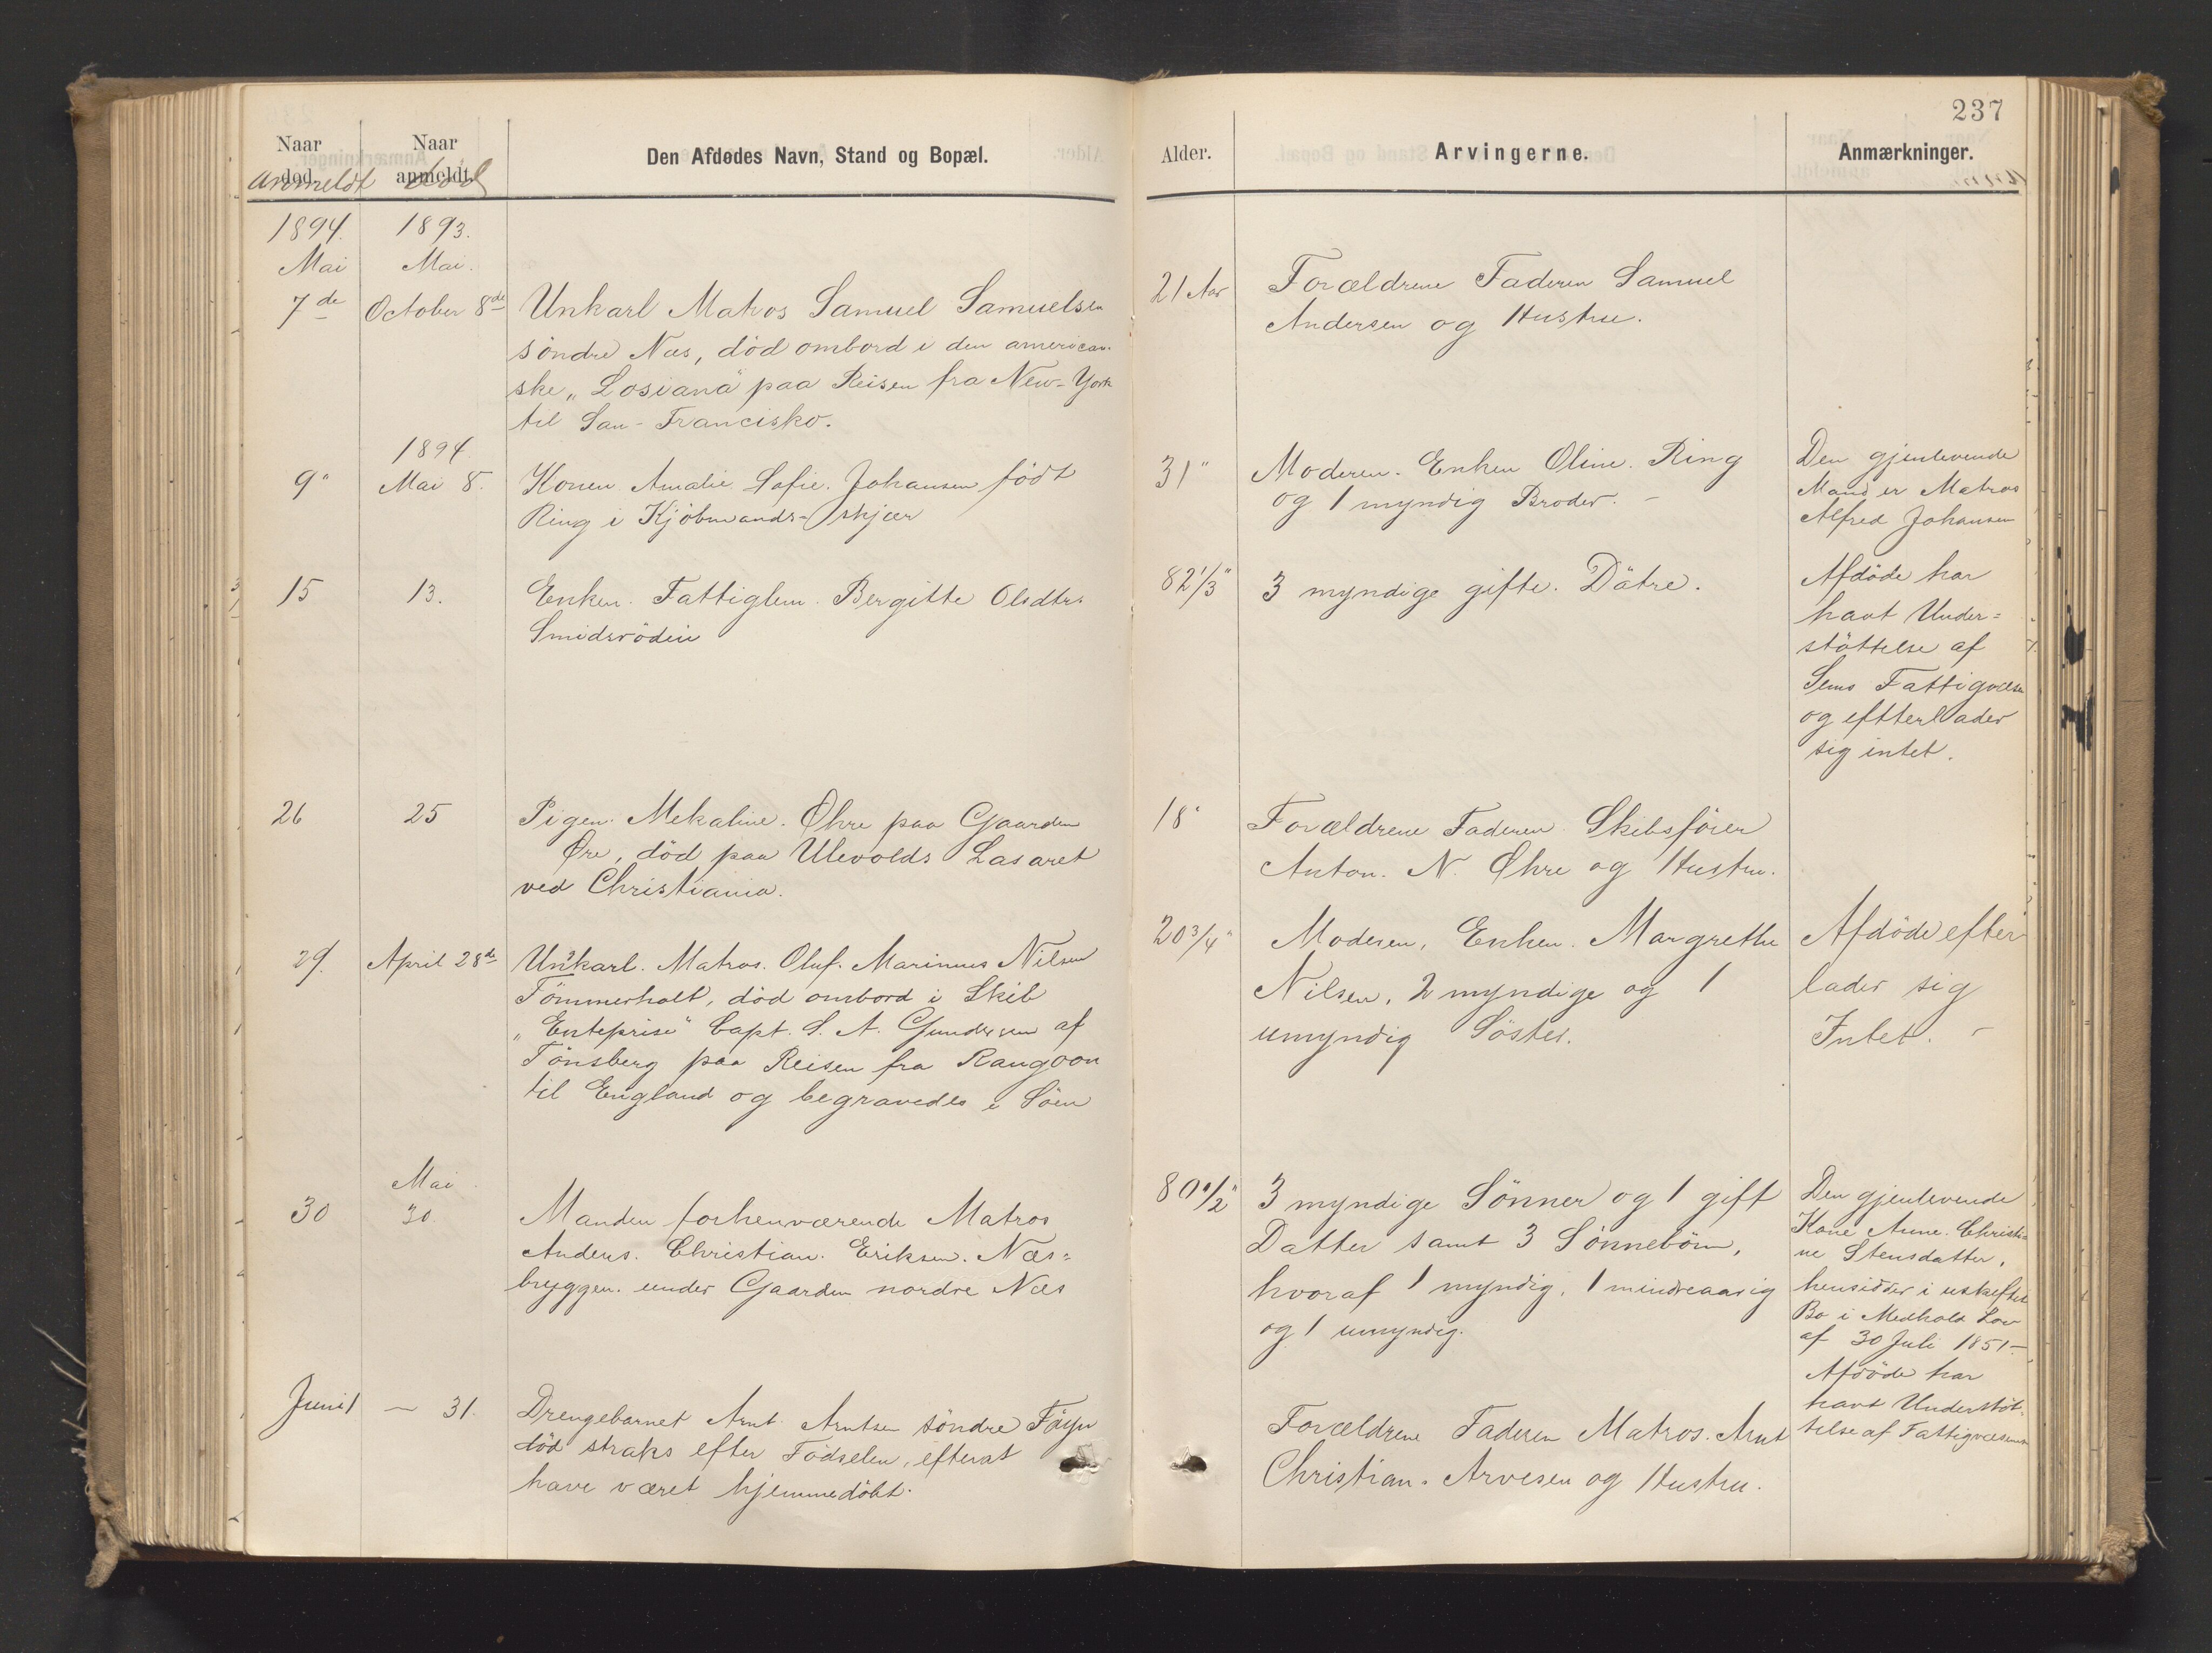 237
Naar død. Naar anmeldt. Den Afdødes Navn, Stand og Bopæl. Alder. Arvingerne. Anmærkninger.
anmeldt død
1894. 1893.
Mai Mai.
7de October 8de Unkarl Matros Samuel Samuelsen
söndre Næs, död ombord i den american-
ske „Losiana" paa Reisen fra New-York
til San-Francisko.
21 Aar
Forældrene Faderen Samuel
Andersen og Hustru.
1894
9" Mai 8. Konen Amalie Sofie Johansen födt
Ring i Kjöbmands-skjær
31"
Moderen. Enken Oline. Ring
og 1 myndig Broder. -
Den gjenlevende
Mand er Matros
Alfred Johansen
15 13. Enken. Fattiglem. Bergitte Olsdtr.
Smidsrödin
82 1/3"
3 myndige gifte. Dötre.
Afdöde har
havt Under=
stöttelse af
Sems Fattigvæsen
og efterlader
sig intet.
26 25 Pigen. Mekaline. Øhre paa Gaarden
Øre, död paa Ulevolds Lasaret
ved Christiania.
18"
Forældrene Faderen Skibsförer
Anton. N. Øhre og Hustru.
29. April 28de Unkarl. Matros. Oluf. Marinius Nilsen
Tömmerholt, död ombord i Skib
„Enteprise" Capt. S. A. Gundersen af
Tönsberg paa Reisen fra Rangoon
til England og begravedes i Söen
20 3/4"
Moderen, Enken. Margrethe
Nilsen, 2 myndige og 1
umyndig Söster.
Afdöde efter
lader sig
Intet. -
Mai
30 30. Manden forhenværende Matros
Anders. Christian. Eriksen. Næs=
bryggen. under Gaarden nordre Næs
80 1/2"
3 myndige Sönner og 1 gift
Datter samt 3 Sönnebörn,
hvoraf 1 myndig, 1 mindreaarig
og 1 umyndig.
Den gjenlevende
Kone Anne. Christi=
ne Stensdatter,
hensidder i uskiftet
Bo i Medhold Lov
af 30 Juli 1851-
Afdöde har
havt Understöt-
telse af Fattigvæsenet
Juni 1 - 31. Drengebarnet Arnt Arntsen söndre Föyn
död straks efter Födselen, efterat
have været hjemmedöbt.
Forældrene Faderen Matros. Arnt
Christian. Arvesen og Hustru.